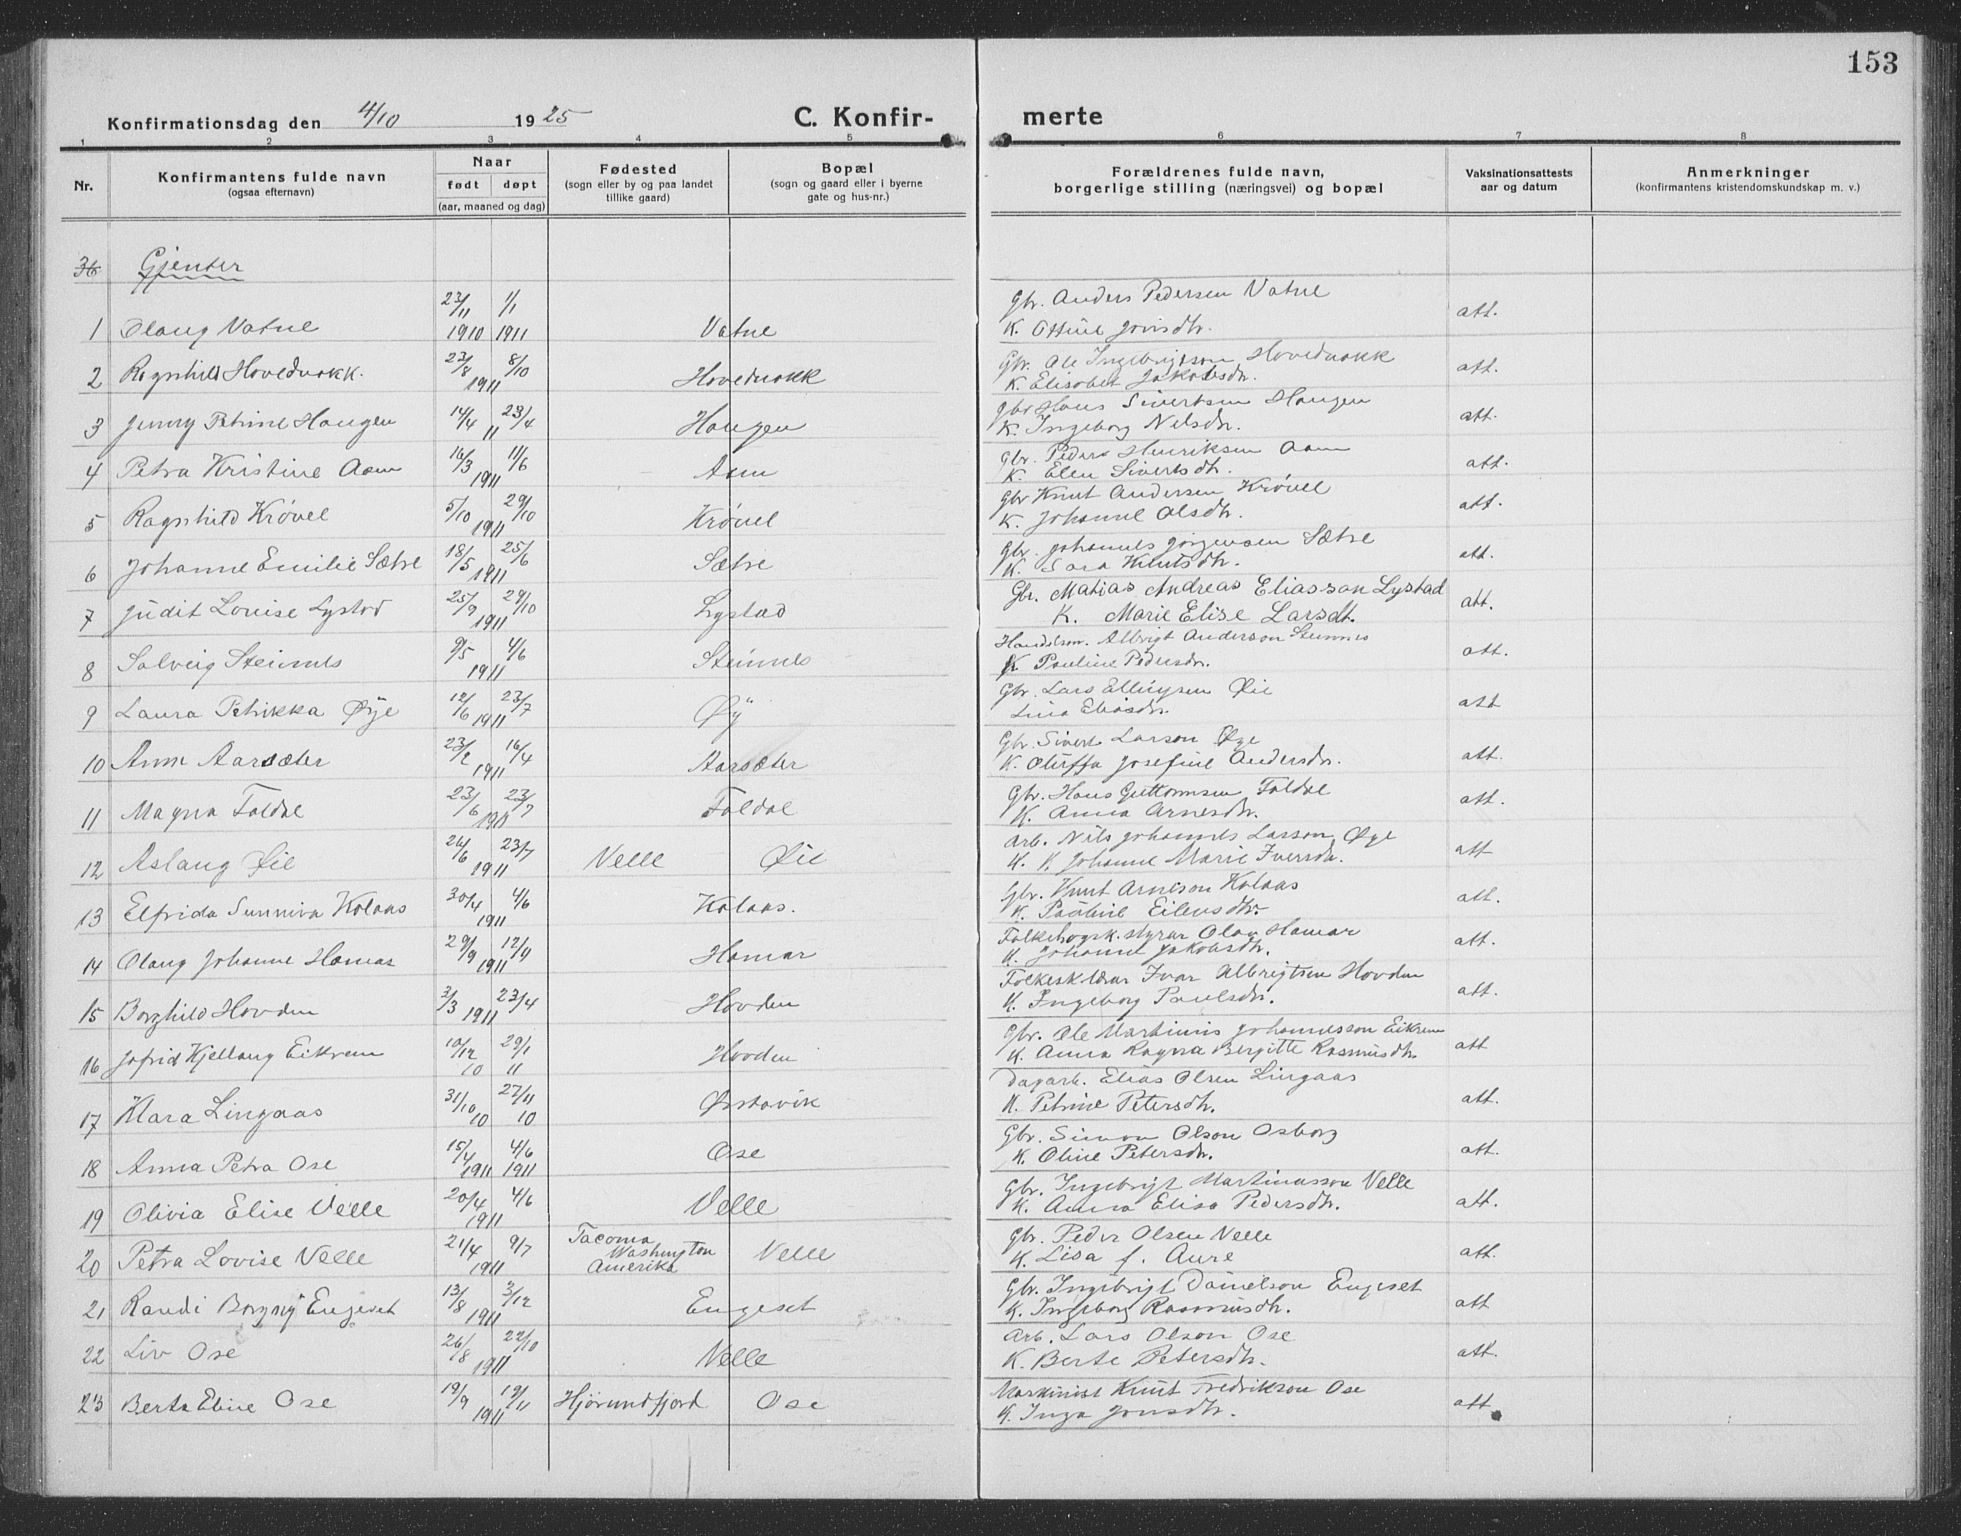 153
Konfirmationsdag den 4/10 1925 C. Konfir- merte
1 2 3 4 5 6 7 8
Nr. Konfirmantens fulde navn (ogsaa efternavn) Naar født døpt (aar, maaned og dag) Fødested (sogn eller by og paa landet tillike gaard) Bopæl (sogn og gaard eller i byerne gate og hus-nr.) Forældrenes fulde navn, borgerlige stilling (næringsvei) og bopæl Vaksinationsattests aar og datum Anmerkninger (konfirmantens kristendomskundskap m. v.)
36 Gjenter
1 Olaug Vatne 23/11 1910 1/1 1911 Vatne Gbr. Anders Pedersen Vatne
K. Ottine Jonsdtr. att.
2 Ragnhild Hovedvakk. 23/8 8/10 1911 Hovedvakk Gbr. Ole Ingebrigtson Hovedvakk
K. Elisabet Jakobsdr. att.
3 Jenny Petrine Haugen 14/4 23/4 11 Haugen Gbr Hans Sivertsen Haugen
K. Ingeborg Nilsdr. att.
4 Petra Kristine Aam 16/3 11/6 1911 Aam Gbr. Peder Henriksen Aam
K. Elen Sivertsdtr. att.
5 Ragnhild Krøvel 5/10 29/10 1911 Krøvel Gbr Knut Andersen Krøvel
K. Johanne Olsdtr. att.
6 Johanne Emilie Sætre 18/5 25/6 1911 Sætre Gbr. Johannes Jørgensen Sætre
K. Sara Knutsdtr. att.
7 Judit Louise Lystad 25/9 29/10 1911 Lystad Gbr. Matias Andreas Eliasson Lystad
K. Marie Elise Larsdt. att.
8 Solveig Steinnes 9/5 4/6 1911 Steinnes Handelsm. Albrigt Anderson Steinnes
K Pauline Pedersdr. att.
9 Laura Petrikka Øye 12/6 23/7 1911 Øy Gbr. Lars Ellingsen Øie
Lina Eliasdr. att
10 Anne Aarsæter 23/2 16/4 1911 Aarsæter Gbr. Sivert Larson Øye
K. Oluffa Josefine Andersdr. att.
11 Magna Foldal 23/6 23/7 1911 Foldal Gbr. Hans Guttormsen Foldal
K. Anna Arnesdtr. att.
12 Aslaug Øie 26/6 23/7 1911 Velle Øie Arb. Nils Johannes Larson Øye
K. K. Johanne Marie Iversdtr. att
13 Elfrida Sunniva Kolaas 30/4 4/6 1911 Kolaas. Gbr. Knut Arneson Kolaas
K. Pauline Eilensdtr. att.
14 Olaug Johanne Hamar 29/9 12/9 1911 Hamar Folkehøgsk. styrar Olav Hamar
K. Johanne Jakobsdtr. att.
15 Borghild Hovden 3/3 23/4 1911 Hovden Folkesk lærar Ivar Albrigtsen Hovden
K. Ingeborg Paulsdr. att.
16 Jofrid Kjellaug Eikrem 10/12 10 29/1 11 Hovden Gbr. Ole Martinus Johannesson Eikrem
K. Anna Ragna Bergitte Rasmusdtr. att
17 Klara Lingaas 31/10 10 27/11 10 Ørstavik Dagarb. Elias Olsen Lingaas
K. Petrine Petersdtr. att.
18 Anna Petra Ose 15/4 1911 4/6 1911 Ose Gbr. Simon Olson Osborg
K. Oline Petersdr. att.
19 Olivia Elise Velle 20/4 4/6 1911 Velle Gbr. Ingebrigt Martinusson Velle
K. Anna Elisa Pedersdtr. att.
20 Petra Lovise Velle 21/4 9/7 1911 Tacoma Washington Amerika Velle Gbr. Peder Olsen Velle
K. Lisa f. Aure att.
21 Randi Borgny Engeset 13/8 3/12 1911 Engeset Gbr. Ingebrigt Danielson Engeset
K. Ingeborg Rasmusdtr. att
22 Liv Ose 26/8 22/10 1911 Velle Arb. Lars Olson Ose
K Berte Petersdtr. att.
23 Berta Eline Ose 19/9 19/11 1911 Hjørundfjord Ose Maskinist Knut Fredrikson Ose
K. Inga Jonsdtr. att.